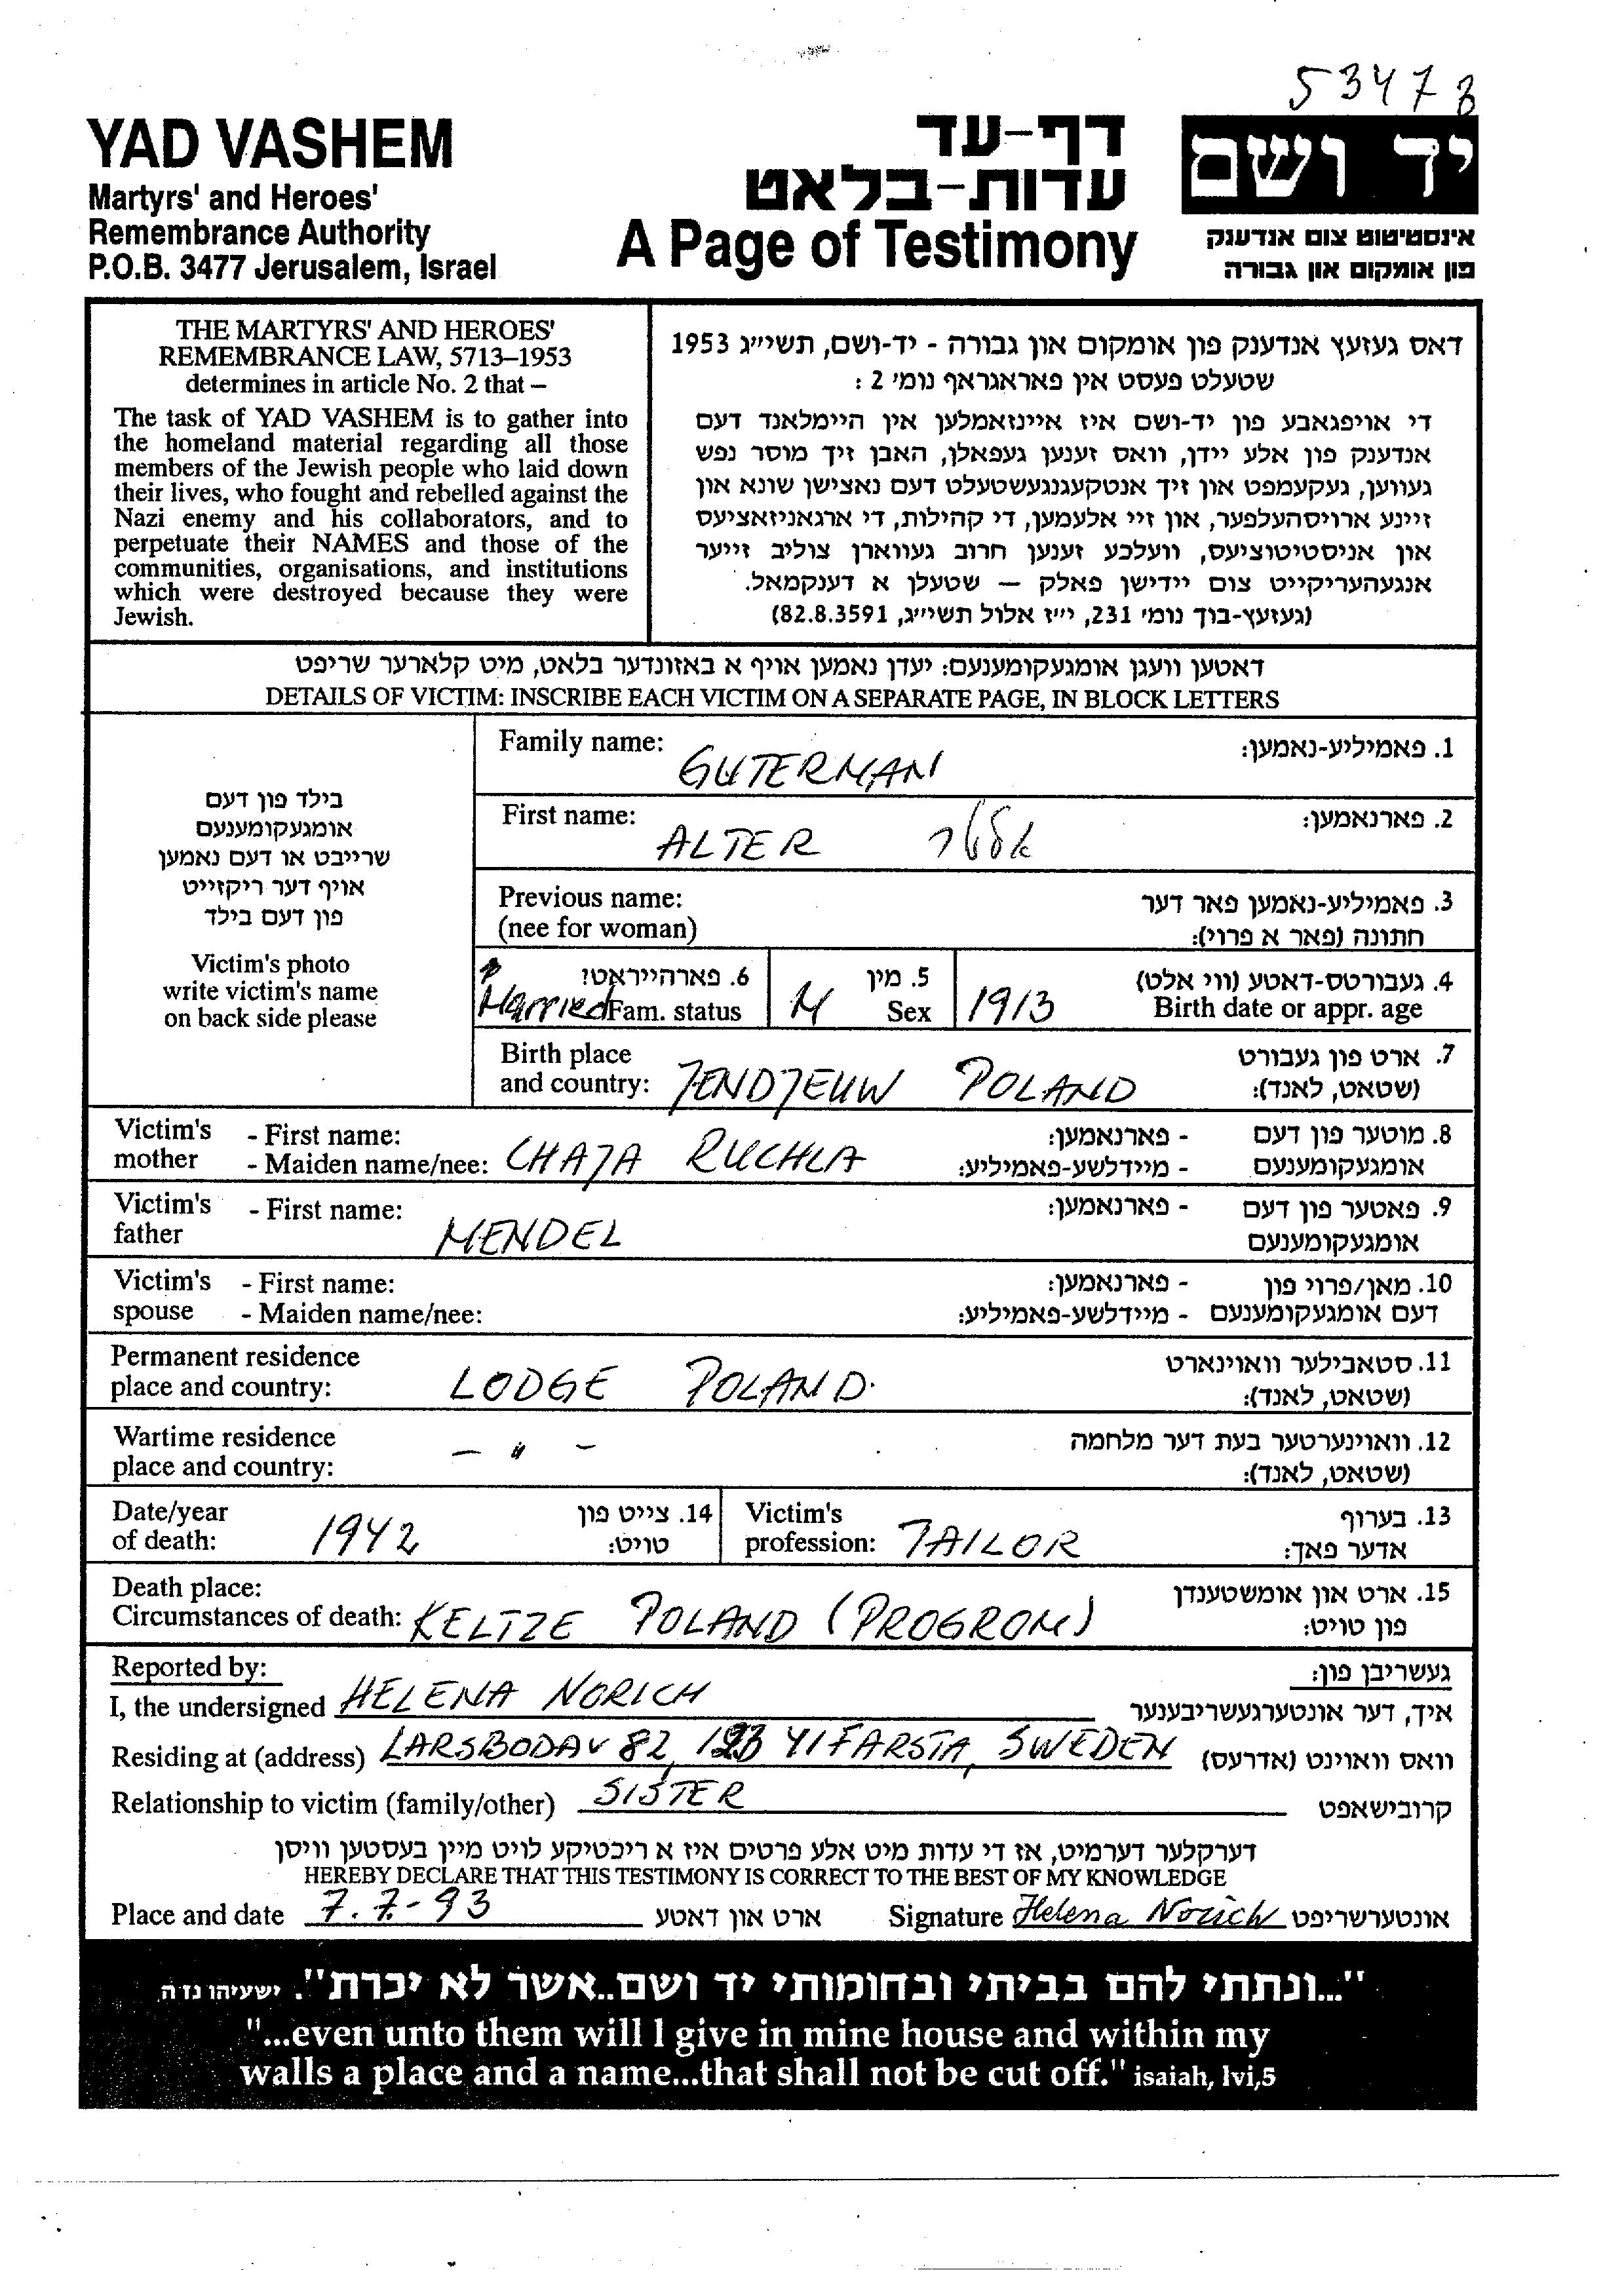 53478
YAD VASHEM
Martyrs' and Heroes'
Remembrance Authority
P.O.B. 3477 Jerusalem, Israel
דף-עד
עדות-בלאט
A Page of Testimony
יד ושם
אינסטיטוט צום אנדענק
פון אומקום און גבורה
THE MARTYRS' AND HEROES'
REMEMBRANCE LAW, 5713–1953
determines in article No. 2 that –
The task of YAD VASHEM is to gather into
the homeland material regarding all those
members of the Jewish people who laid down
their lives, who fought and rebelled against the
Nazi enemy and his collaborators, and to
perpetuate their NAMES and those of the
communities, organisations, and institutions
which were destroyed because they were
Jewish.
דאס געזעץ אנדענק פון אומקום און גבורה - יד-ושם, תשי״ג 1953
שטעלט פעסט אין פאראגראף נומ׳ 2 :
די אויפגאבע פון יד-ושם איז איינזאמלען אין היימלאנד דעם
אנדענק פון אלע יידן, וואס זענען געפאלן, האבן זיך מוסר נפש
געווען, געקעמפט און זיך אנטקעגנגעשטעלט דעם נאצישן שונא און
זיינע ארויסהעלפער, און זיי אלעמען, די קהילות, די ארגאניזאציעס
און אניסטיטוציעס, וועלכע זענען חרוב געווארן צוליב זייער
אנגעהעריקייט צום יידישן פאלק — שטעלן א דענקמאל.
(געזעץ-בוך נומ׳ 231, י״ז אלול תשי״ג, 82.8.3591)
דאטען וועגן אומגעקומענעם: יעדן נאמען אויף א באזונדער בלאט, מיט קלארער שריפט
DETAILS OF VICTIM: INSCRIBE EACH VICTIM ON A SEPARATE PAGE, IN BLOCK LETTERS
בילד פון דעם
אומגעקומענעם
שרייבט או דעם נאמען
אויף דער ריקזייט
פון דעם בילד
Victim's photo
write victim's name
on back side please
Family name: GUTERMAN 1. פאמיליע-נאמען:
First name: ALTER אלטר 2. פארנאמען:
Previous name: 3. פאמיליע-נאמען פאר דער
(nee for woman) חתונה (פאר א פרוי):
6. פארהייראט? 5. מין 4. געבורטס-דאטע (ווי אלט)
Married Fam. status M Sex 1913 Birth date or appr. age
Birth place 7. ארט פון געבורט
and country: JENDJEUW POLAND (שטאט, לאנד):
Victim's - First name: - פארנאמען: 8. מוטער פון דעם
mother - Maiden name/nee: CHAJA RUCHLA - מיידלשע-פאמיליע: אומגעקומענעם
Victim's - First name: - פארנאמען: 9. פאטער פון דעם
father MENDEL אומגעקומענעם
Victim's - First name: - פארנאמען: 10. מאן/פרוי פון
spouse - Maiden name/nee: - מיידלשע-פאמיליע: דעם אומגעקומענעם
Permanent residence 11. סטאבילער וואוינארט
place and country: LODGE POLAND. (שטאט, לאנד):
Wartime residence – " – 12. וואוינערטער בעת דער מלחמה
place and country: (שטאט, לאנד):
Date/year 14. צייט פון Victim's 13. בערוף
of death: 1942 טויט: profession: TAILOR אדער פאך:
Death place: 15. ארט און אומשטענדן
Circumstances of death: KELTZE POLAND (PROGROM) פון טויט:
Reported by: געשריבן פון:
I, the undersigned HELENA NORICH איך, דער אונטערגעשריבענער
Residing at (address) LARSBODAV 82, 123 41 FARSTA, SWEDEN וואס וואוינט (אדרעס)
Relationship to victim (family/other) SISTER קרובישאפט
דערקלער דערמיט, אז די עדות מיט אלע פרטים איז א ריכטיקע לויט מיין בעסטען וויסן
HEREBY DECLARE THAT THIS TESTIMONY IS CORRECT TO THE BEST OF MY KNOWLEDGE
Place and date 7.7-93 ארט און דאטע Signature Helena Norich אונטערשריפט
"...ונתתי להם בביתי ובחומותי יד ושם..אשר לא יכרת". ישעיהו נז ה
"...even unto them will I give in mine house and within my
walls a place and a name...that shall not be cut off." isaiah, lvi,5